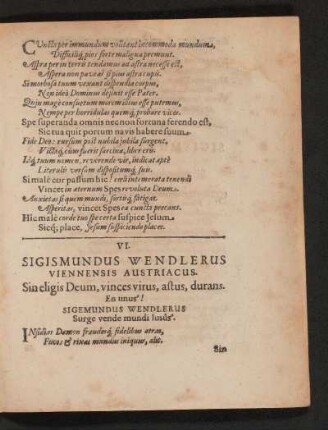 CUncta per immundum volitant incommoda mundum,
Difficiliq́ pios sorte maligna premunt.
Astra per in terris tendamus ad astra necesse est,
Aspera non paveat si pius astra cupit.
Si morbosa tuum vexant dispendia corpus,
Non ideò Dominus desinit esse Pater.
Quin magè consuetum morem illius esse putemus,
Nempe per horridulas quemq́; probare vices.
Spe superanda omnis nec non fortuna ferendo est,
Sic tua quit portum navis habere suum.
Fide Deo: rursum post nubila jubila surgent,
Victisq́; consurget
Idq́; tuum nomen, reverende vir, indicat aptè
Literulis versum dispositumq́; suis.
Si malè cor passum hic: certè intemerata tenendi
Vincet in aternum Spes revoluta Deum.
Anxietas si quem mundi, sortisq́; fatigat
Asperitas, vincet Spes ea cuncta precant.
Hic malè corde tuo spe certa suspice Jesum.
Sicq́; place, Jesum suspiciendo places.
VI.
SIGISMUNDUS WENDLERUS
VIENNENSIS AUSTRIACUS.
Sin eligis Deum, vinces virus, astus, durans.
En unus!
SIGEMUNDUS WENDLERUS
Surge vende mundi
INsidias Dæmon fraudesq́; fidelibus atras,
Fucos & rixas mundus iniquus, alit.
Sin